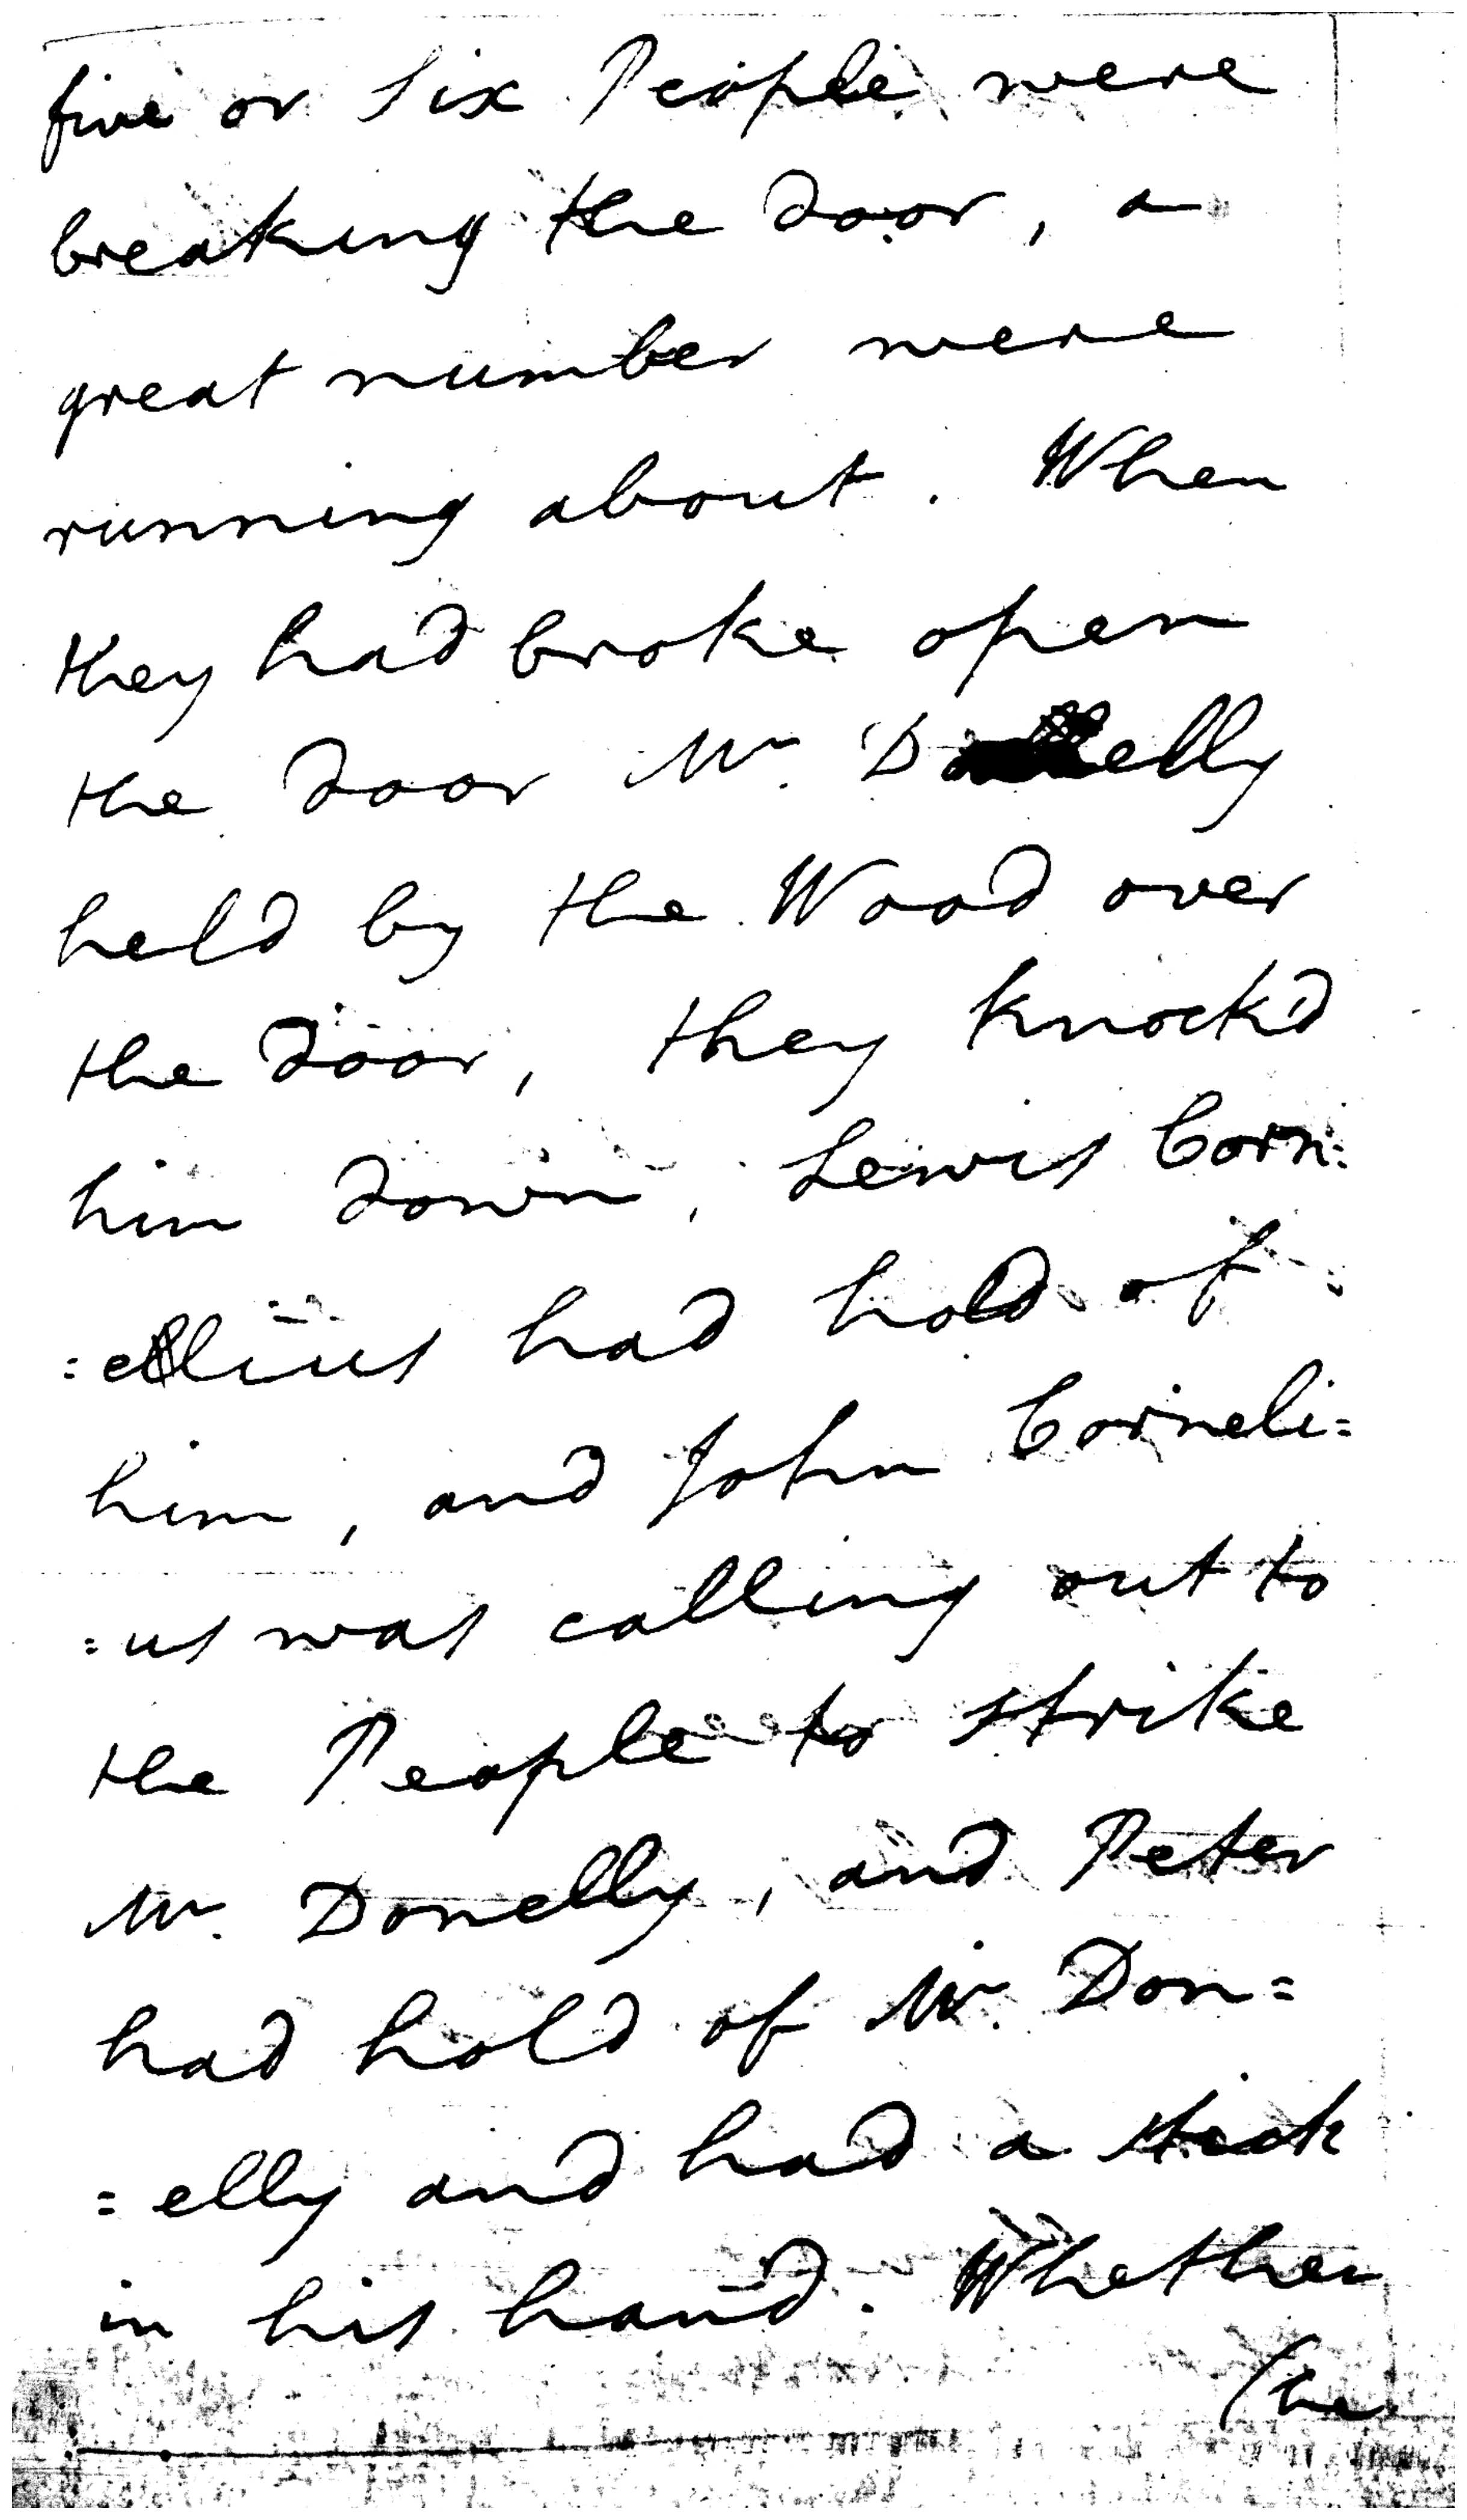 five or Six People were
breaking the Door, a
great number were
running about. When
they had broke open
the Door Mr. D elly
held by the Wood over
the Door, they knock'd
him down, Lewis Corn=
=ellius had hold of
him, and John Corneli=
=us was calling out to
the People to strike
Mr. Donelly, and Peter
had hold of Mr. Don=
=elly and had a stick
in his hand. Whether
(he